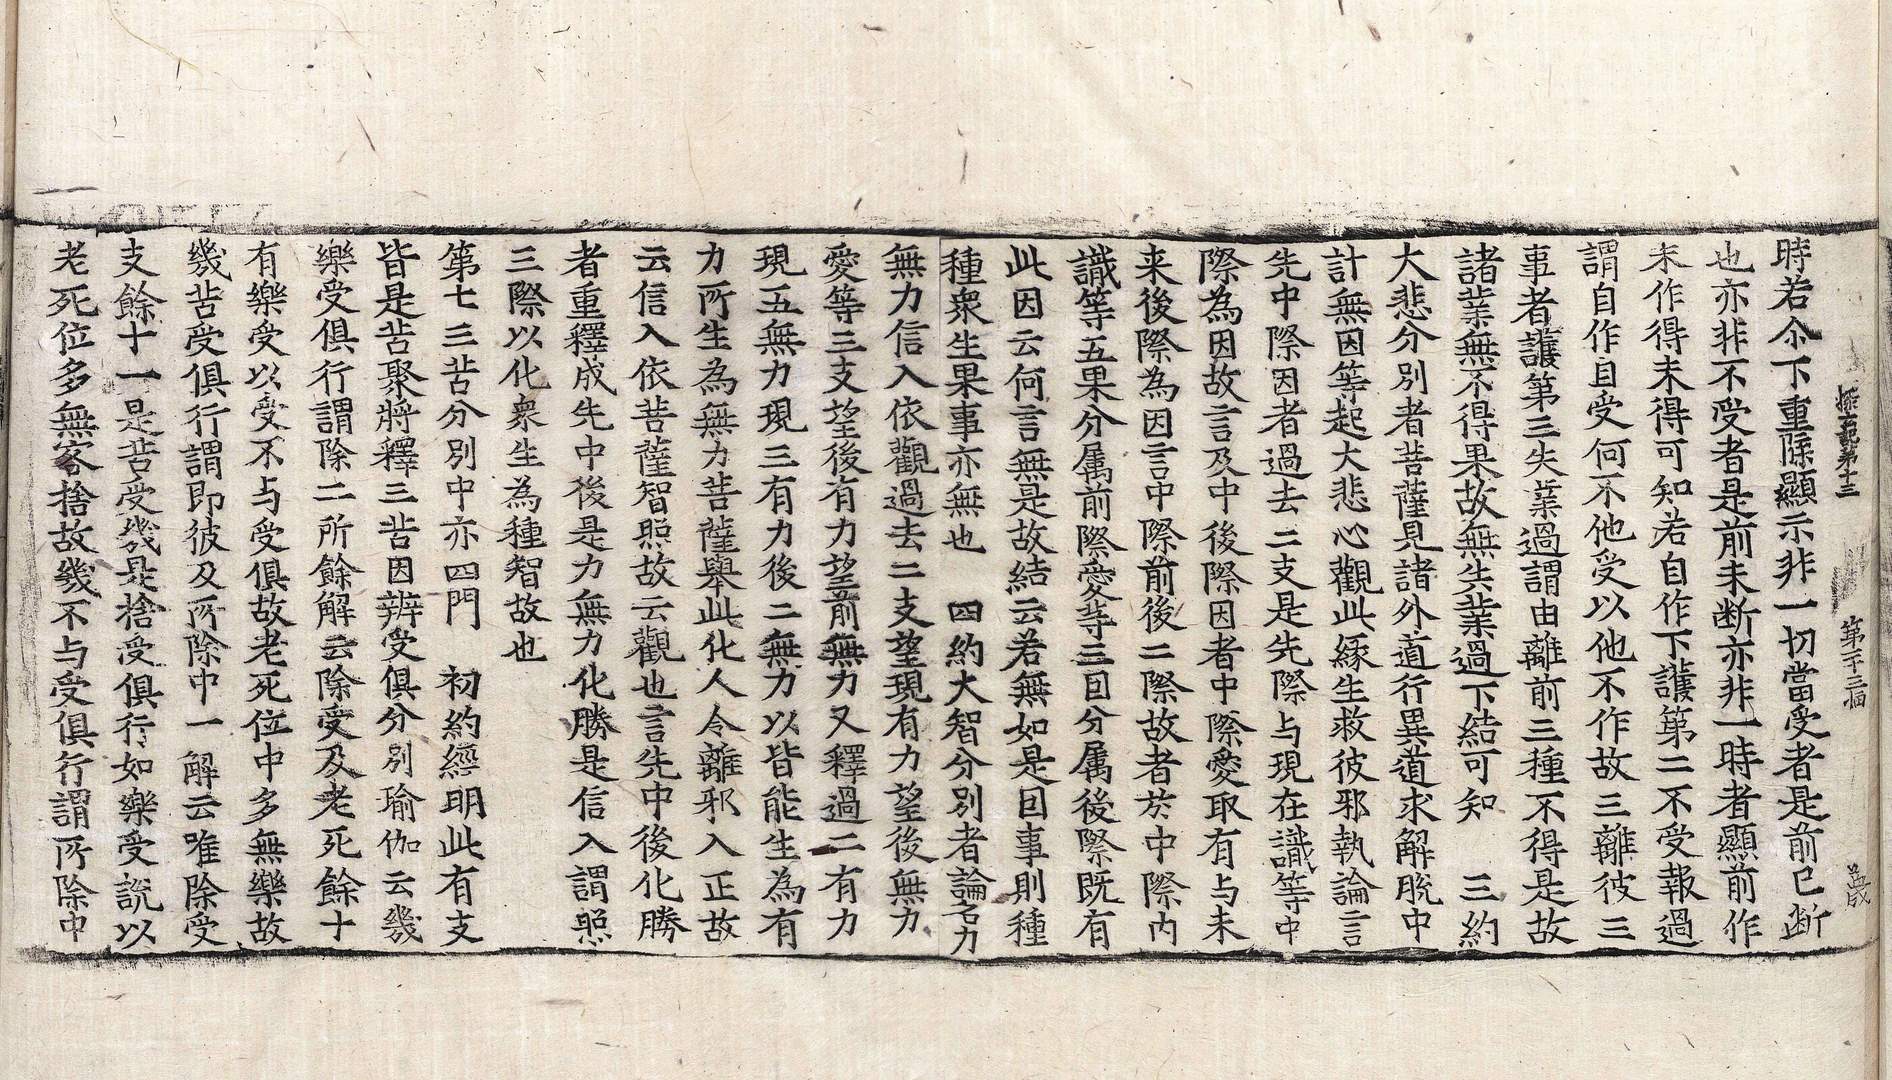 探玄記第十三　第二十三幅
時若尒下重隂顯示非一切當受者是前已断
也亦非不受者是前未断亦非一時者顯前作
未作得未得可知若自作下護第二不受報過
謂自作自受何不他受以他不作故三離彼三
事者護第三失業過謂由離前三種不得是故
諸業無不得果故無失業過下結可知　三約
大悲分別者菩薩見諸外道行異道求解脫中
計無因等起大悲心觀此緣生救彼邪執論言
先中際因者過去二支是先際与現在識等中
際為因故言及中後際因者中際愛取有与未
来後際為因言中際前後二際故者於中際内
識等五果分属前際愛等三因分属後際既有
此因云何言無是故結云若無如是因事則種
種衆生果事亦無也　四約大智分別者論名力
無力信入依觀過去二支望現有力望後無力
愛等三支望後有力望前無力又釋過二有力
現五無力現三有力後二無力以皆能生為有
力所生為無力菩薩舉此化人令離邪入正故
云信入依菩薩智照故云觀也言先中後化勝
者重釋成先中後是力無力化勝是信入謂照
三際以化衆生為種智故也
第七三苦分別中亦四門　初約經明此有支
皆是苦聚將釋三苦因辨受俱分別瑜伽云幾
樂受俱行謂除二所餘解云除受及老死餘十
有樂受以受不与受俱故老死位中多無樂故
幾苦受俱行謂即彼及所除中一解云唯除受
支餘十一是苦受幾是捨受俱行如樂受說以
老死位多無客捨故幾不与受俱行謂所除中